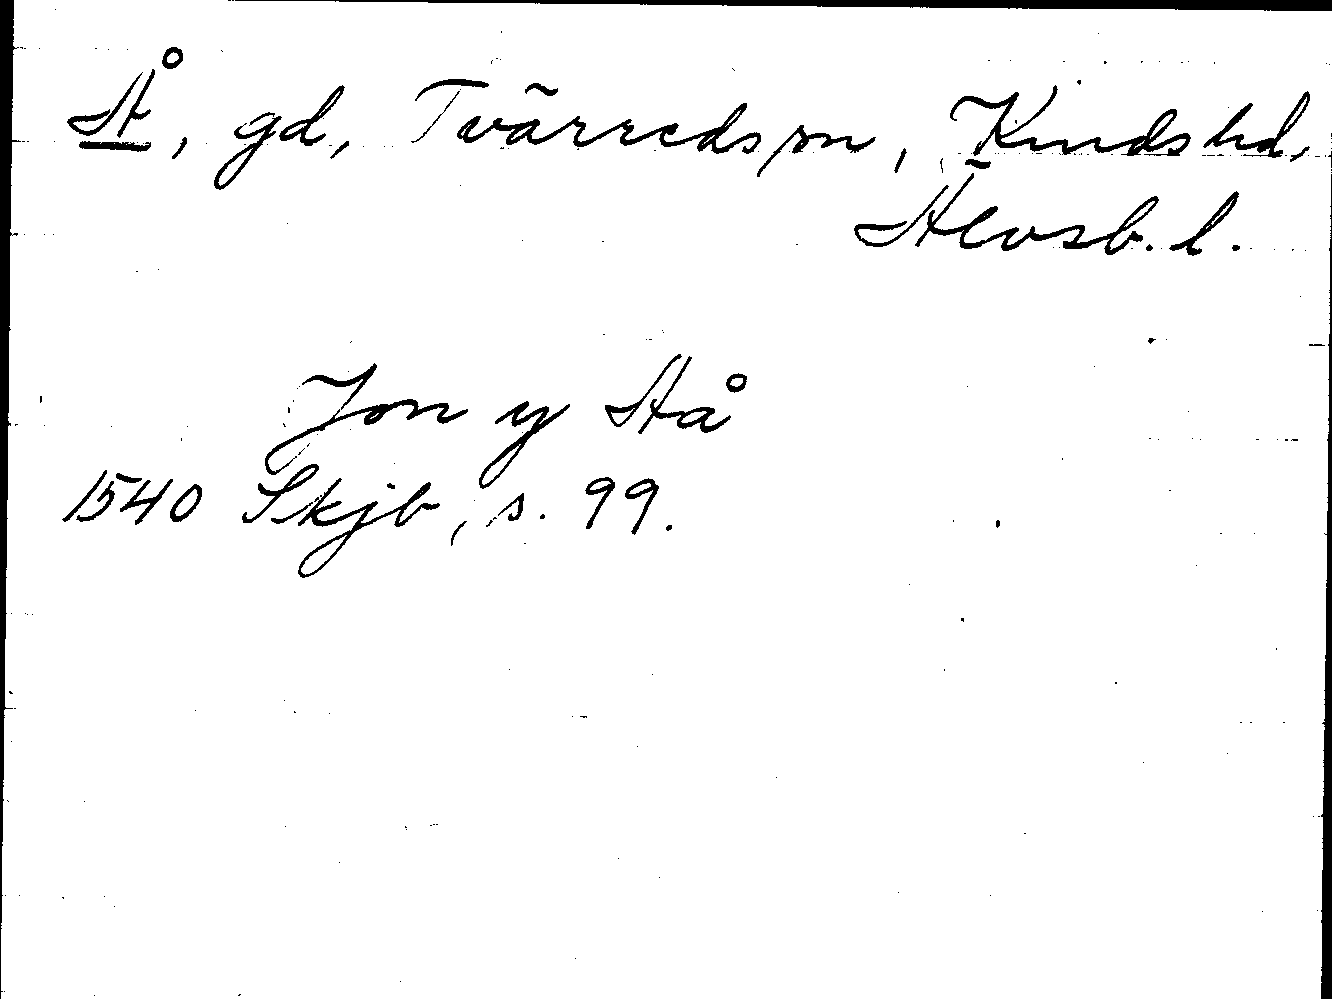 Å, gd, Tvärreds sn, Kinds hd,
Älvsb. l.
Jon y Aå
1540 Skjb, s. 99.